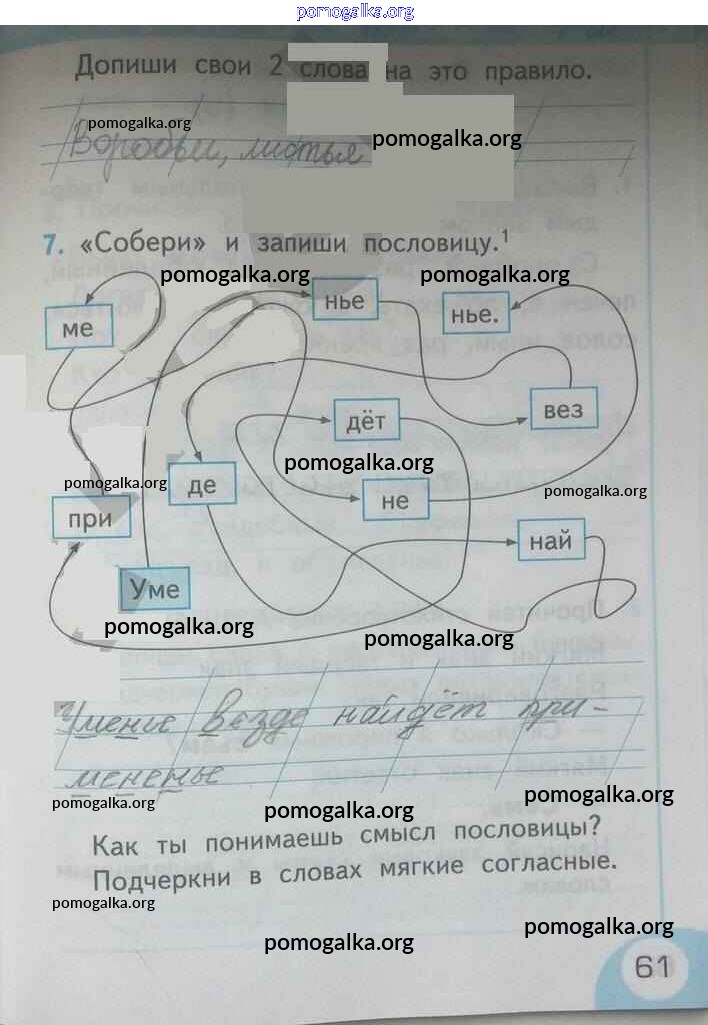 pomogalka.org
Допиши свои 2 слова на это правило.
pomogalka.org
pomogalka.org
Воробьи, листья
7. «Собери» и запиши пословицу.¹
pomogalka.org pomogalka.org
ме нье нье.
дёт вез
pomogalka.org
де
pomogalka.org pomogalka.org
при не
най
Уме
pomogalka.org pomogalka.org
Уменье везде найдёт при-
мененье
pomogalka.org pomogalka.org pomogalka.org
Как ты понимаешь смысл пословицы?
Подчеркни в словах мягкие согласные.
pomogalka.org pomogalka.org pomogalka.org
61